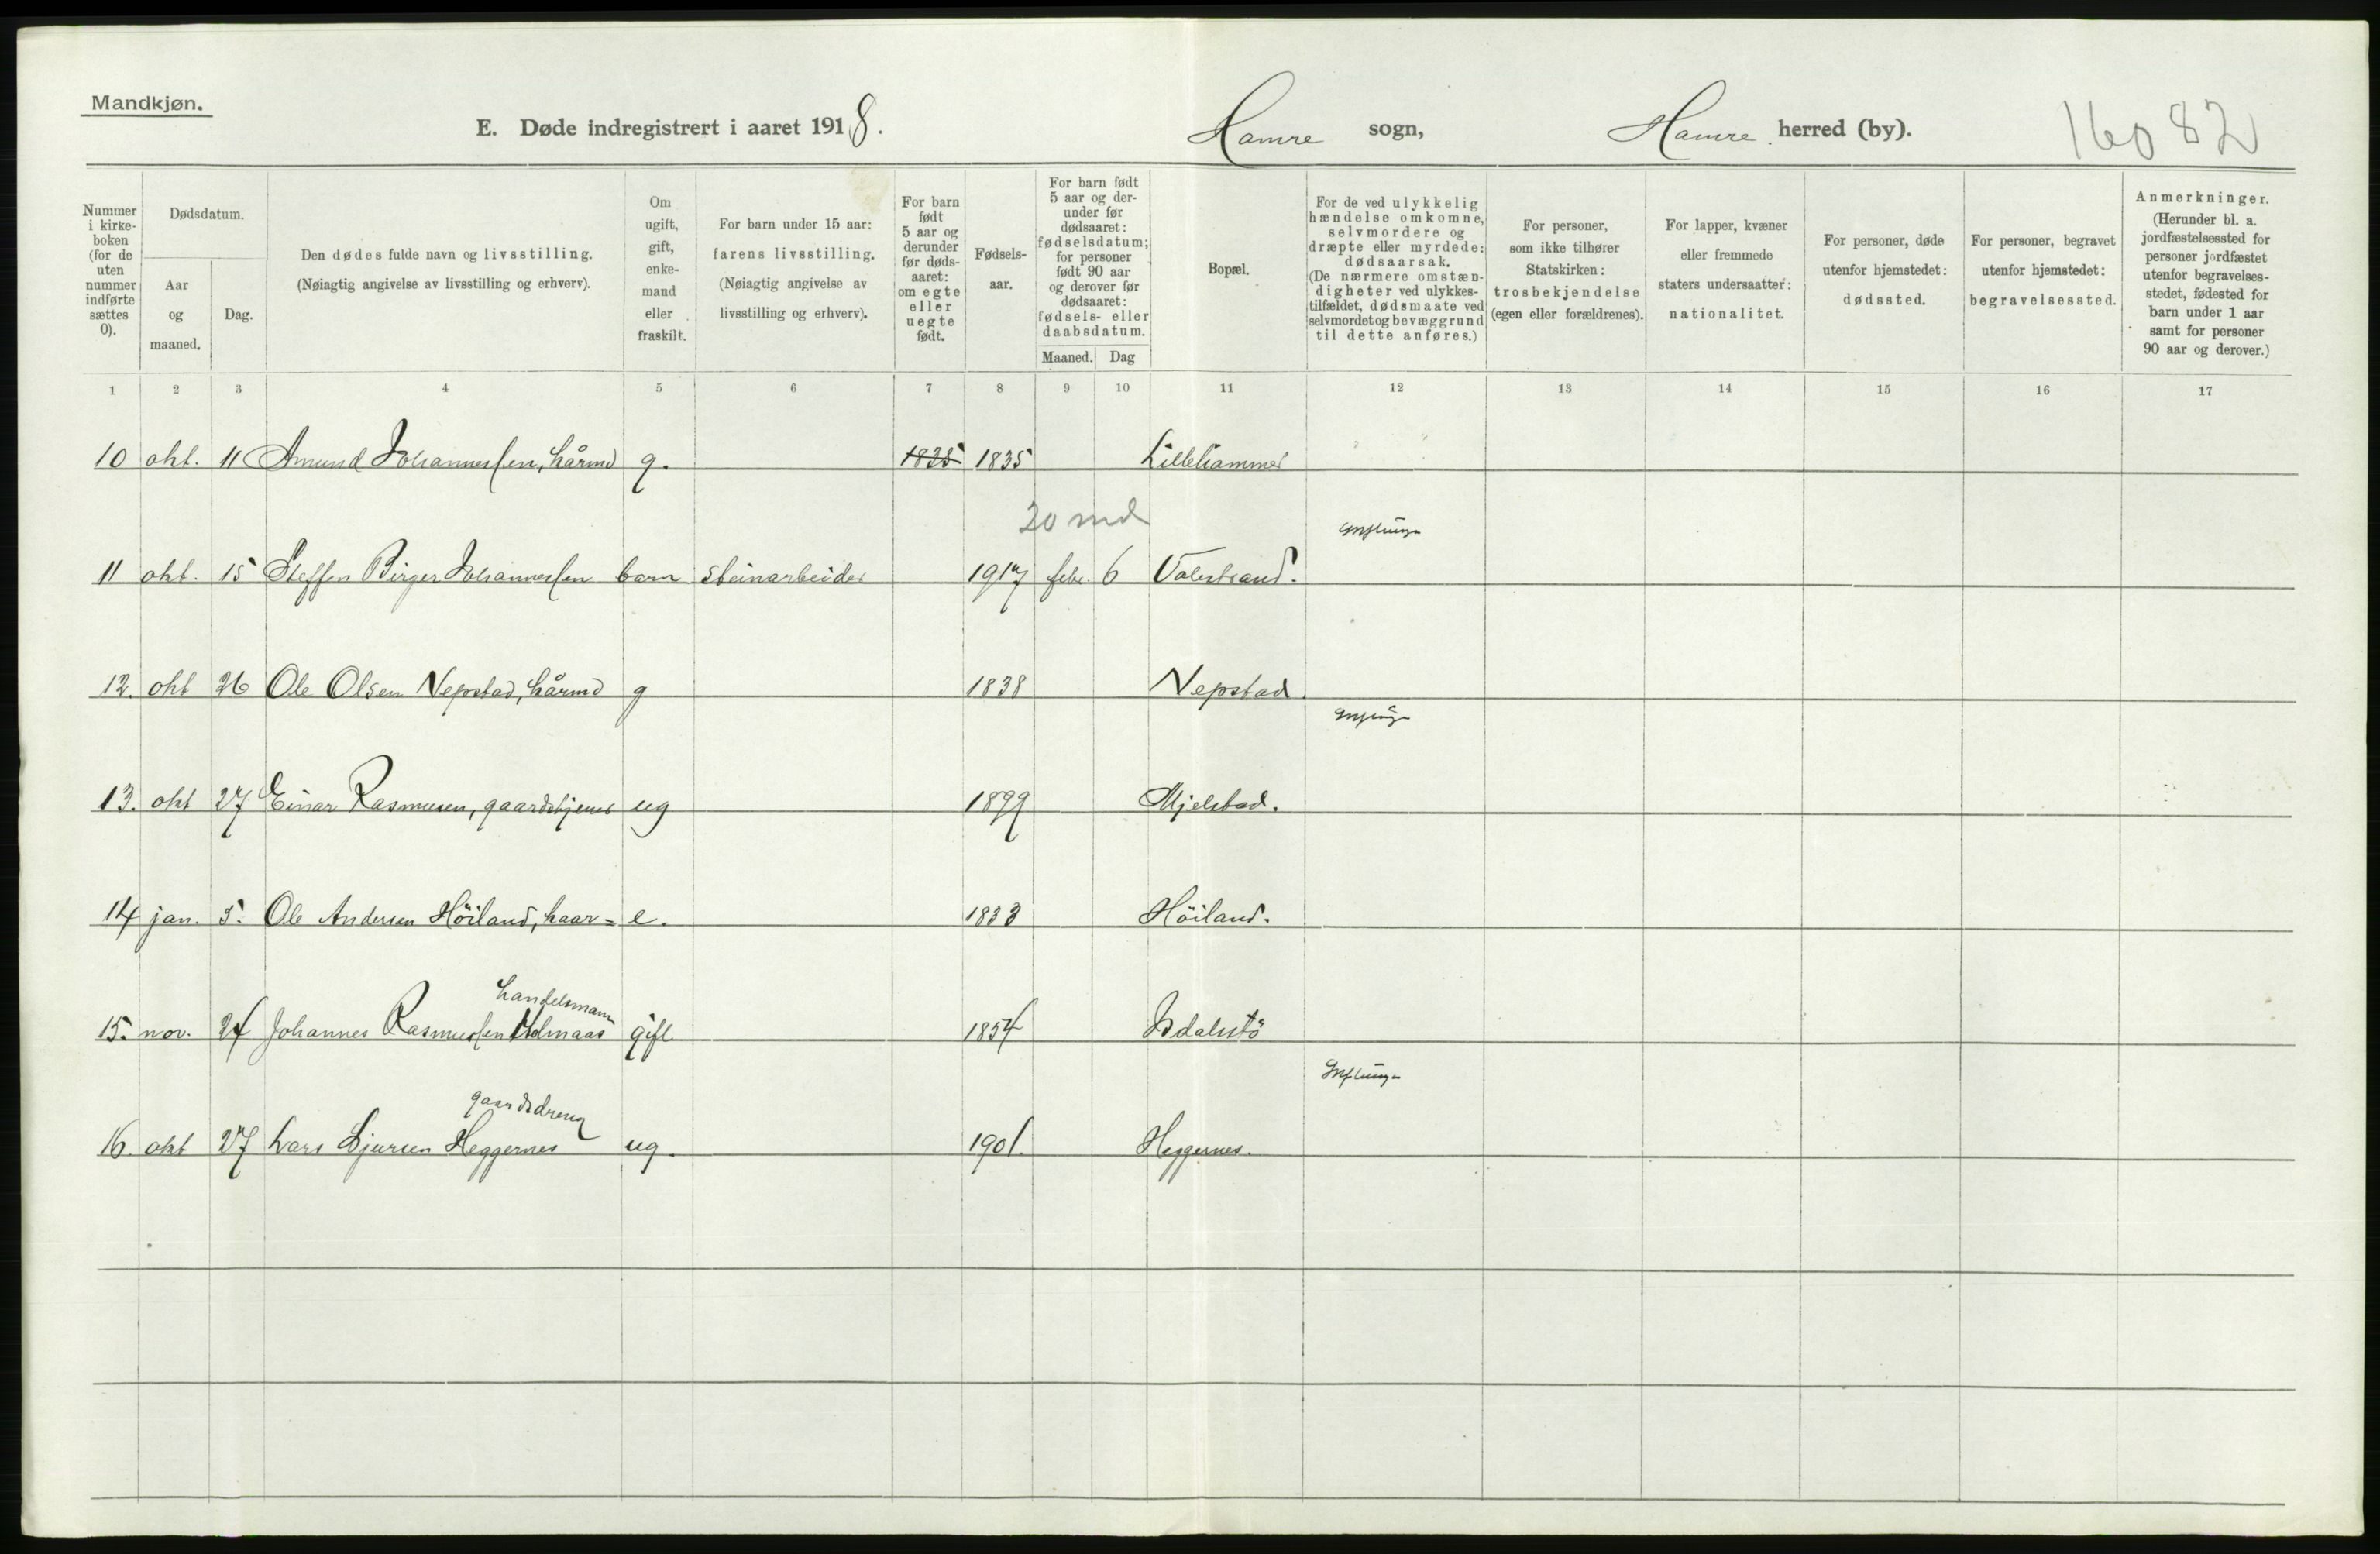 Mandkjøn.
E. Døde indregistrert i aaret 1918. Hamre sogn, Hamre herred (by). 16082
Nummer i kirkeboken (for de uten nummer indførte sættes 0).
Dødsdatum.
Aar og maaned.
Dag.
Den dødes fulde navn og livsstilling.
(Nøiagtig angivelse av livsstilling og erhverv).
Om ugift, gift, enkemand eller fraskilt.
For barn under 15 aar: farens livsstilling.
(Nøiagtig angivelse av livsstilling og erhverv).
For barn født 5 aar og derunder før dødsaaret: om egte eller uegte født.
Fødselsaar.
For barn født 5 aar og derunder før dødsaaret: fødselsdatum; for personer født 90 aar og derover før dødsaaret: fødsels- eller daabsdatum.
Maaned. Dag
Bopæl.
For de ved ulykkelig hændelse omkomne, selvmordere og dræpte eller myrdede: dødsaarsak.
(De nærmere omstændigheter ved ulykkestilfældet, dødsmaate ved selvmordet og bevæggrund til dette anføres.)
For personer, som ikke tilhører Statskirken: trosbekjendelse (egen eller forældrenes).
For lapper, kvæner eller fremmede staters undersaatter: nationalitet.
For personer, døde utenfor hjemstedet: dødssted.
For personer, begravet utenfor hjemstedet: begravelsessted.
Anmerkninger.
(Herunder bl. a. jordfæstelsessted for personer jordfæstet utenfor begravelsesstedet, fødested for barn under 1 aar samt for personer 90 aar og derover.)
1 2 3 4 5 6 7 8 9 10 11 12 13 14 15 16 17
10 okt. 11 Amund Johannessen, kårmd g. 1835 1835 Lillehammer
20 md
11 okt. 15 Steffen Birger Johannessen barn steinarbeider 1917 febr. 6 Valestrand.
12. okt 26 Ole Olsen Nepstad, kårmd g 1838 Nepstad
13. okt 27 Einar Rasmusen, gaardstjener ug 1899 Mjelstad.
14 jan. 5. Ole Andersen Höiland, kaar= e. 1833 Höiland.
handelsmann
15. nov. 24 Johannes Rasmussen gift 1854 Isdalstö
gaardsdreng
16. okt 27 Lars Sjursen Heggernes ug. 1901. Heggernes.